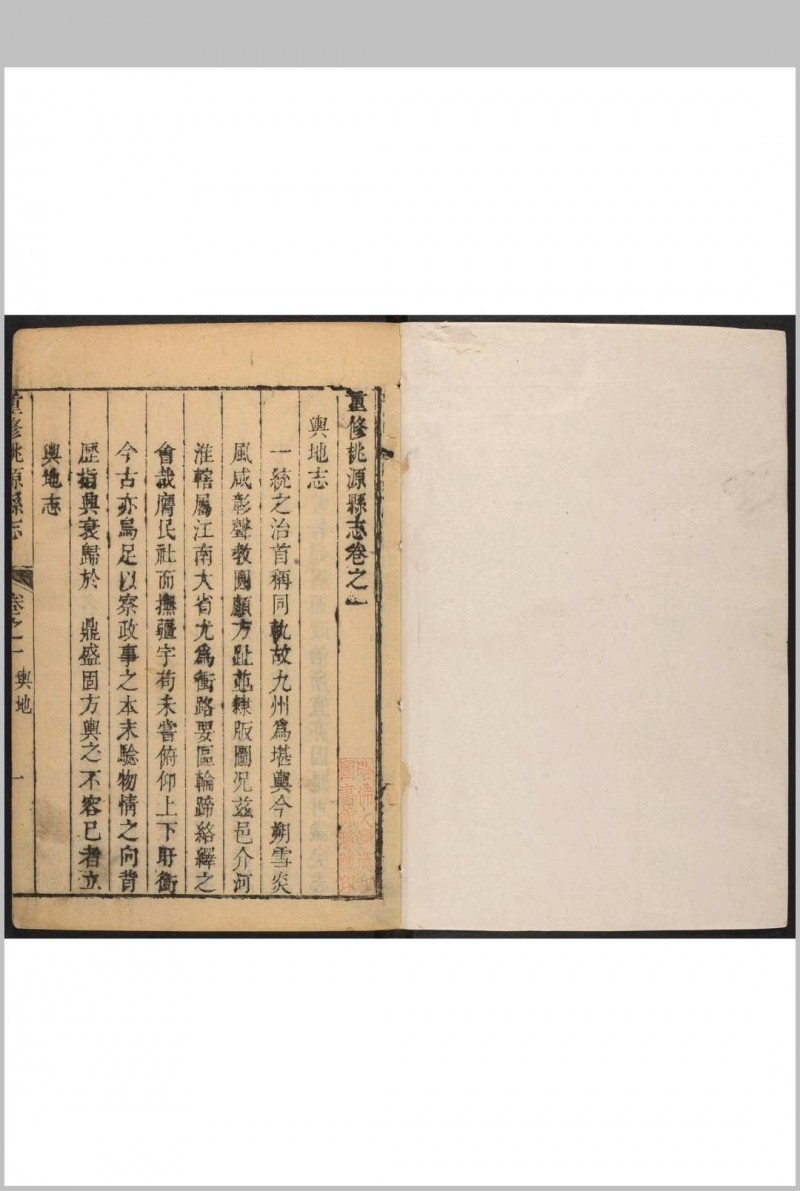 重修桃源縣志卷之一
輿地志
一統之治首稱同軌故九州爲堪輿今朔雪炎
風咸彰聲教圓顱方趾並隸版圖況茲邑介河
淮轄屬江南大省尤爲衝路要區輪蹄絡繹之
會哉膺民社而撫疆宇苟未嘗俯仰上下盱衡
今古亦烏足以察政事之本末驗物情之向背
歷指興衰歸於 鼎盛固方輿之不容已者立
輿地志
重修桃源縣志 卷之一 輿地 一